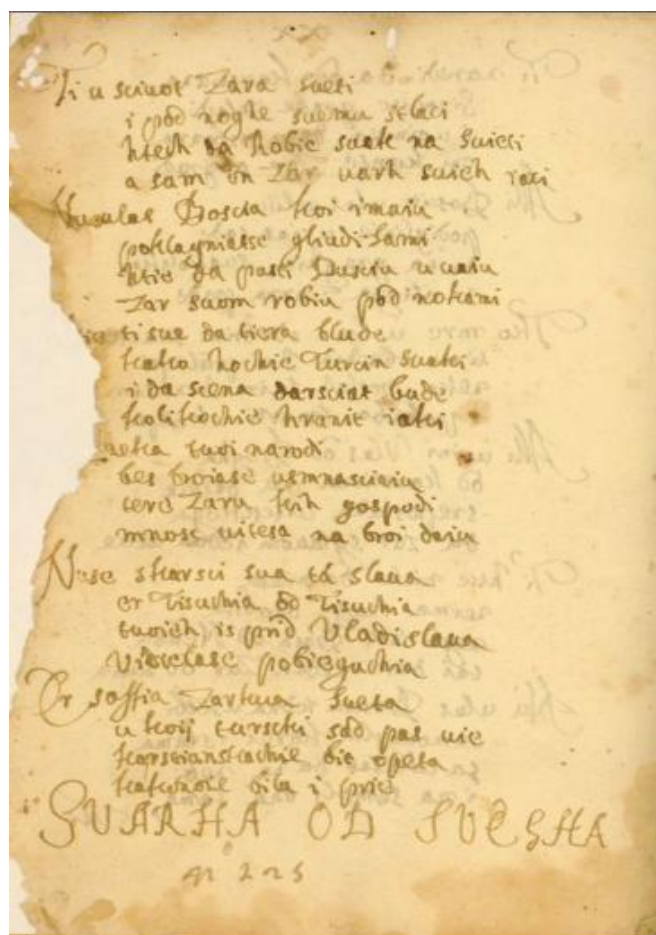 Ti u scivot Zara sveti
i pòd noghe svemu stlaci
htech da robie svak na svieti
a sam òn Zar varh svieh
Boscia koi imaiu
poklagniasse gliudi sami
htie da pasci Dusciu u
Zar svom robiu pòd nokami
ti sve da tiera blude
kako hochie Turcin svaki
i da scena darsciat bude
kolikochie hranit iaki
tvoi narodi
bes broiase usmnasciaiu
cere Zaru kih gospodi
mnosc vitesa na broi daiu
Nuse skarsci sva tà slava
er Tisuchia òd Tisuchia
tvoieh is prid Vladislava
Vidielase pobieguchia
Er soffia Zartuia sveta
u koij turscki sàd pas vie
karscianskachie bit opeta
kakonoie bila i priè
SVARHA OD SVEGHA